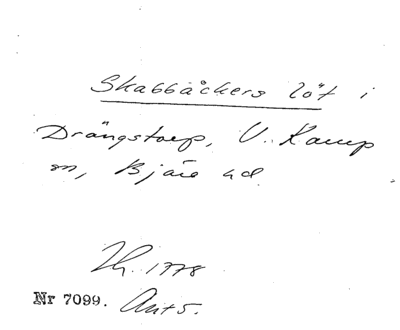 Skabbåckers löt i
Drängstorp, V. Karup
sn, Bjäre hd.
Lh. 1778
Nr 7099. Akt 5.